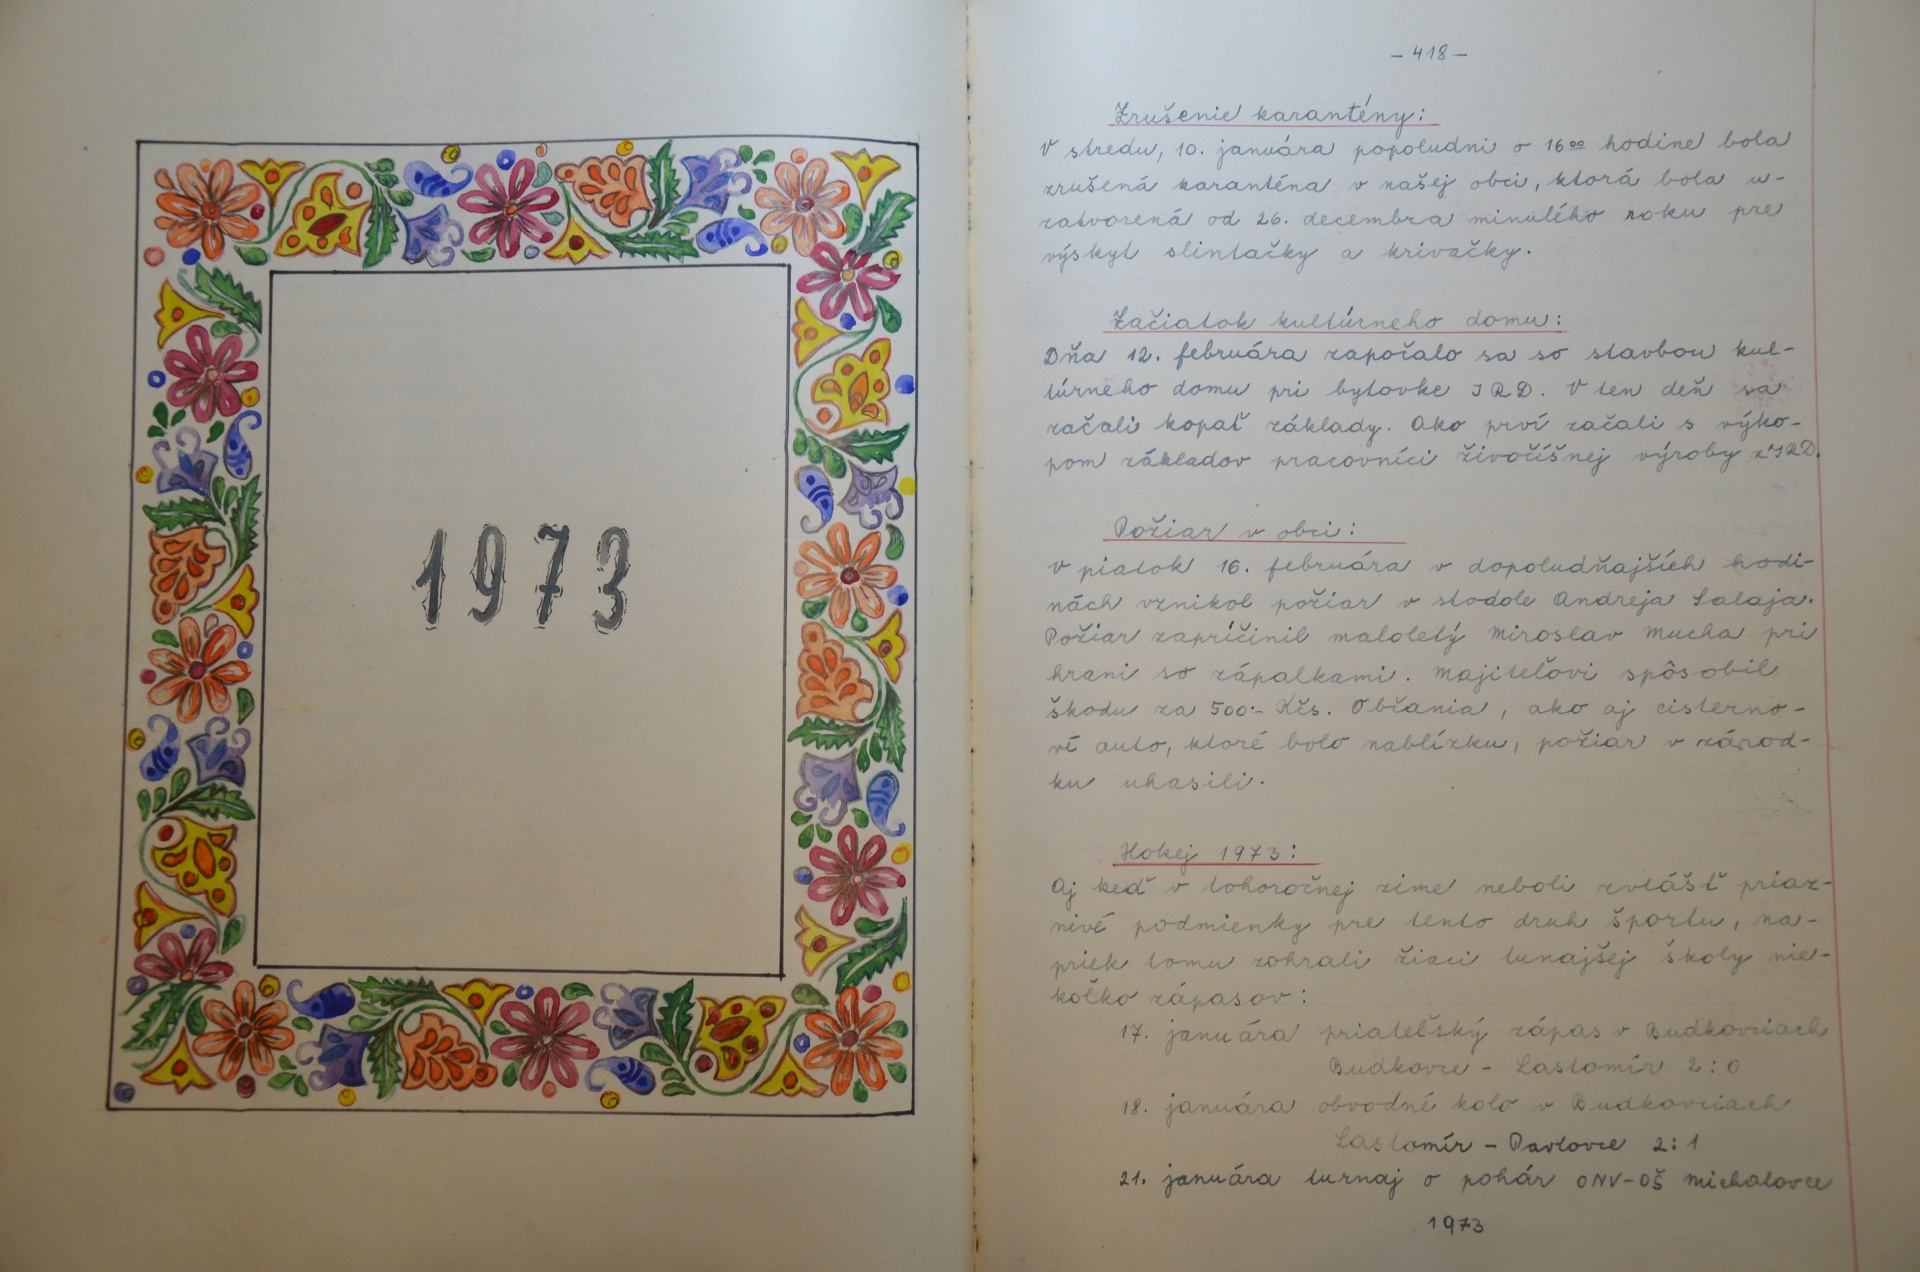 1973
- 418 -
Zrušenie karantény:
V stredu, 10. januára popoludní o 16⁰⁰ hodine bola
zrušená karanténa v našej obci, ktorá bola u-
zatvorená od 26. decembra minulého roku pre
výskyt slintačky a krívačky.
Začiatok kultúrneho domu:
Dňa 12. februára započalo sa so stavbou kul-
túrneho domu pri bytovke JRD. V ten deň sa
začali kopať základy. Ako prví začali s výko-
pom základov pracovníci živočíšnej výroby z JRD.
Požiar v obci:
V piatok 16. februára v dopoludňajších hodi-
nách vznikol požiar v stodole Andreja Salaja.
Požiar zapríčinil maloletý Miroslav Mucha pri
hraní so zápalkami. Majiteľovi spôsobil
škodu za 500.- Kčs. Občania, ako aj cisterno-
vé auto, ktoré bolo nablízku, požiar v zárod-
ku uhasili.
Hokej 1973:
Aj keď v tohoročnej zime neboli zvlášť priaz-
nivé podmienky pre tento druh športu, na-
priek tomu zohrali žiaci tunajšej školy nie-
koľko zápasov:
17. januára priateľský zápas v Budkovciach
Budkovce - Lastomír 2:0
18. januára obvodné kolo v Budkovciach
Lastomír - Pavlovce 2:1
21. januára turnaj o pohár ONV-OŠ Michalovce
1973